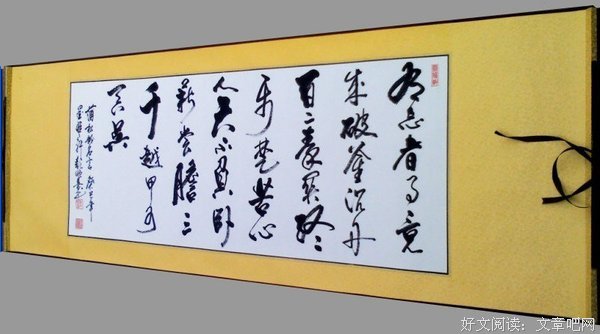 有志者事竟
成破釜沉舟
百二秦关终
归楚苦心
人天不負卧
薪尝膽三
千越甲可
吞吴
蒲松龄名言 癸巳年
好文阅读：文章吧网